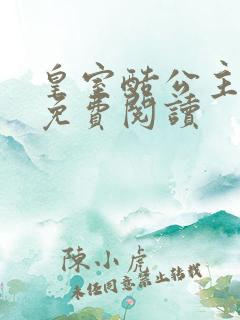 皇室酷公主
免費閱讀
陳小虎
未經同意禁止轉載